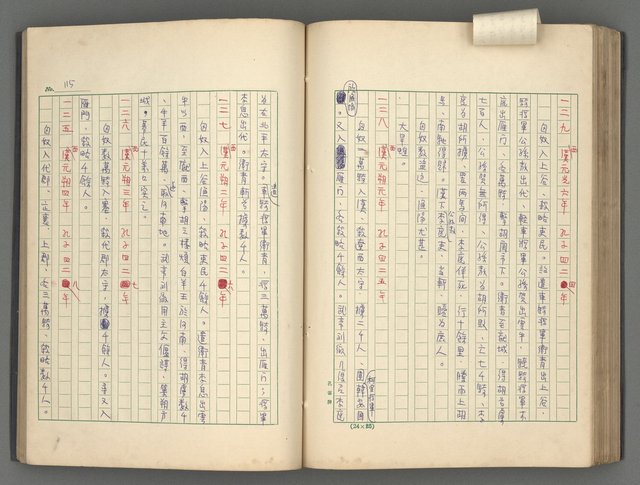 一二九 西漢元光六年 孔子四二
匈奴入上谷,殺略吏民。遣車騎將軍衛青出上谷,
騎將軍公孫敖出代,輕車將軍公孫賀出雲中,驍騎將軍李
廣出雁門,各萬騎,擊胡關市下。衛青至龍城,得胡首虜
七百人,公孫賀無所得,公孫敖為胡所敗,亡七千騎,李
廣為胡所擒,置兩馬間,李廣佯死,行十餘里,騰而上胡
馬,南馳得歸。漢下李廣公孫敖吏,當斬,贖為庶人。
匈奴數盜邊,漁陽尤甚。
大旱蝗。
一二八 西漢元朔 孔子四二五年
匈奴二萬騎入漢,殺遼西太守,擄二千人,圍韓安國
。又入雁門,各殺略千餘人。武帝 李廣
(24×25)
No. 115
為右北平太守。遣車騎將軍衛青,將三萬騎,出雁門;將軍
李息出代。衛青斬首擄數千人。
一二七 西漢元朔二年 孔子四二六年
匈奴入上谷漁陽,殺略吏民千餘人。遣衛青李息出雲
中以西,至隴西,擊胡樓煩白羊王於河南,得胡虜數千
,牛羊百餘萬,取河南地。武帝 用主父偃謀,築朔方
城。募民十萬口實之。
一二六 西漢元朔三年 孔子四二七年
匈奴數萬騎入塞,殺代郡太守,擄千餘人。又入
雁門,殺略千餘人。
一二五 西漢元朔四年 孔子四二八年
匈奴入代郡、定襄、上郡,各三萬騎,殺略數千人。